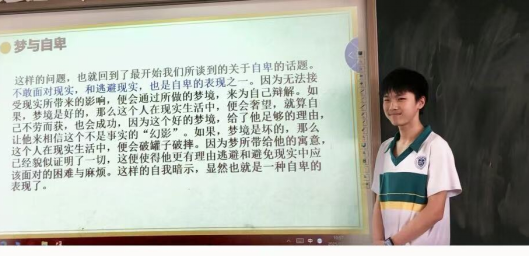 梦与自卑
这样的问题，也就回到了最开始我们所谈到的关于自卑的话题。
不敢面对现实，和逃避现实，也是自卑的表现之一。因为无法接
受现实所带来的影响，便会通过所做的梦境，来为自己辩解。如
果，梦境是好的，那么这个人在现实生活中，便会奢望，就算自
己不劳而获，也会成功，因为这个好的梦境，给了他足够的理由，
让他来相信这个不是事实的“幻影”。如果，梦境是坏的，那么
这个人在现实生活中，便会破罐子破摔。因为梦所带给他的寓意，
已经貌似证明了一切，这便使得他更有理由逃避和避免现实中应
该面对的困难与麻烦。这样的自我暗示，显然也就是一种自卑的
表现了。